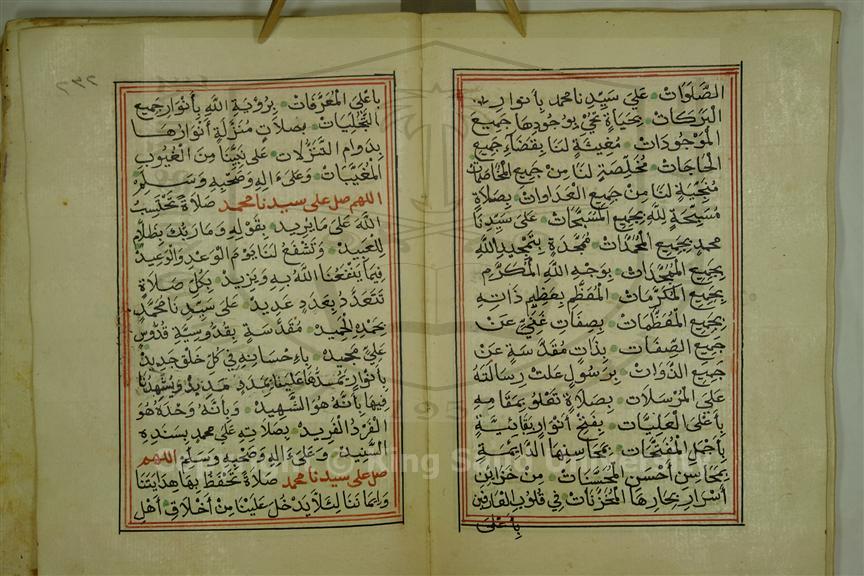 الصَّلَوَاتِ عَلَى سَيِّدِنَا مُحَمَّدٍ بِأَنْوَارِ
الْبَرَكَاتِ بِحَيَاةٍ تُحْيِي بِوُجُودِهَا جَمِيعَ
الْمَوْجُودَاتِ مُغِيثَةٍ لَنَا بِقَضَاءِ جَمِيعِ
الْحَاجَاتِ مُخَلِّصَةٍ لَنَا مِنْ جَمِيعِ
مُنْجِيَةٍ لَنَا مِنْ جَمِيعِ الْعَدَاوَاتِ بِصَلَاةٍ
مُسَبِّحَةٍ لِلَّهِ بِجَمِيعِ الْمُسَبِّحَاتِ عَلَى سَيِّدِنَا
مُحَمَّدٍ بِجَمِيعِ الْمُحَمَّدَاتِ مُمَجَّدَةٍ بِتَمْجِيدِ اللَّهِ
بِجَمِيعِ الْمُمَجِّدَاتِ بِوَجْهِ اللَّهِ الْمُكَرَّمِ
بِجَمِيعِ الْمُكَرَّمَاتِ الْمُعَظَّمِ بِعَظِيمِ ذَاتِهِ
بِجَمِيعِ الْمُعَظَّمَاتِ بِصِفَاتٍ غَنِيٍّ عَنْ
جَمِيعِ الصِّفَاتِ بِذَاتٍ مُقَدَّسَةٍ عَنْ
جَمِيعِ الذَّوَاتِ بِرَسُولٍ عَلَتْ رِسَالَتُهُ
عَلَى الْمُرْسَلَاتِ بِصَلَاةٍ تَعْلُو بِمَقَامِهِ
بِأَعْلَى الْعَلِيَّاتِ بِفَتْحِ أَنْوَارٍ
بِأَجْمَلِ الْمُفَتَّحَاتِ بِمَحَاسِنِهَا الدَّائِمِيَّةِ
بِمَحَاسِنِ أَحْسَنِ الْمُحَسَّنَاتِ مِنْ خَزَائِنِ
أَسْرَارِ بِحَارِهَا الْمُخَزَّنَاتِ فِي قُلُوبِ الْعَارِفِينَ
بِأَعْلَى
٢٣٢
بِأَعْلَى الْمُعَرَّفَاتِ بِرُؤْيَةِ اللَّهِ بِأَنْوَارِ جَمِيعِ
التَّجَلِّيَاتِ بِصَلَاتٍ مُنَزَّلَةٍ أَنْوَارُهَا
بِدَوَامِ التَّنَزُّلَاتِ عَلَى نَبِيِّنَا مِنَ الْغُيُوبِ
الْمُغَيَّبَاتِ وَعَلَى ءَالِهِ وَصَحْبِهِ وَسَلِّمْ
اللهم صل على سيدنا محمد صَلَاةً تَحْتَسِبُ
اللَّهَ عَلَى مَا يُرِيدُ بِقَوْلِهِ وَمَا رَبُّكَ بِظَلَّامٍ
لِلْعَبِيدِ وَتَشْفَعُ لَنَا يَوْمَ الْوَعْدِ وَالْوَعِيدِ
فِيمَا يَنْفَعُنَا اللَّهُ بِهِ وَيَزِيدُ بِكُلِّ صَلَاةٍ
تَتَعَدَّدُ بِعَدَدٍ عَدِيدٍ عَلَى سَيِّدِنَا مُحَمَّدٍ
بِحَمْدِهِ الْحَمِيدِ مُقَدَّسَةٍ بِقُدُّوسِيَّةِ قُدُّوسٍ
عَلِيٍّ مَجِيدٍ بِإِحْسَانِهِ فِي كُلِّ خَلْقٍ جَدِيدٍ
بِأَنْوَارٍ يَمُدُّهَا عَلَيْنَا بِمَدَدٍ مَدِيدٍ وَيُشْهِدُنَا
فِيهَا بِأَنَّهُ هُوَ الشَّهِيدُ وَبِأَنَّهُ وَحْدَهُ هُوَ
الْفَرْدُ الْفَرِيدُ بِصَلَاتِهِ عَلَى مُحَمَّدٍ بِسَنَدِهِ
السَّنِيدِ وَعَلَى ءَالِهِ وَصَحْبِهِ وَسَلِّمْ اللهم
صل على سيدنا محمد صَلَاةً تَحْفَظُ بِهَا هِدَايَتَنَا
وَإِيمَانَنَا لِئَلَّا يَدْخُلَ عَلَيْنَا مِنْ أَخْلَاقِ أَهْلِ